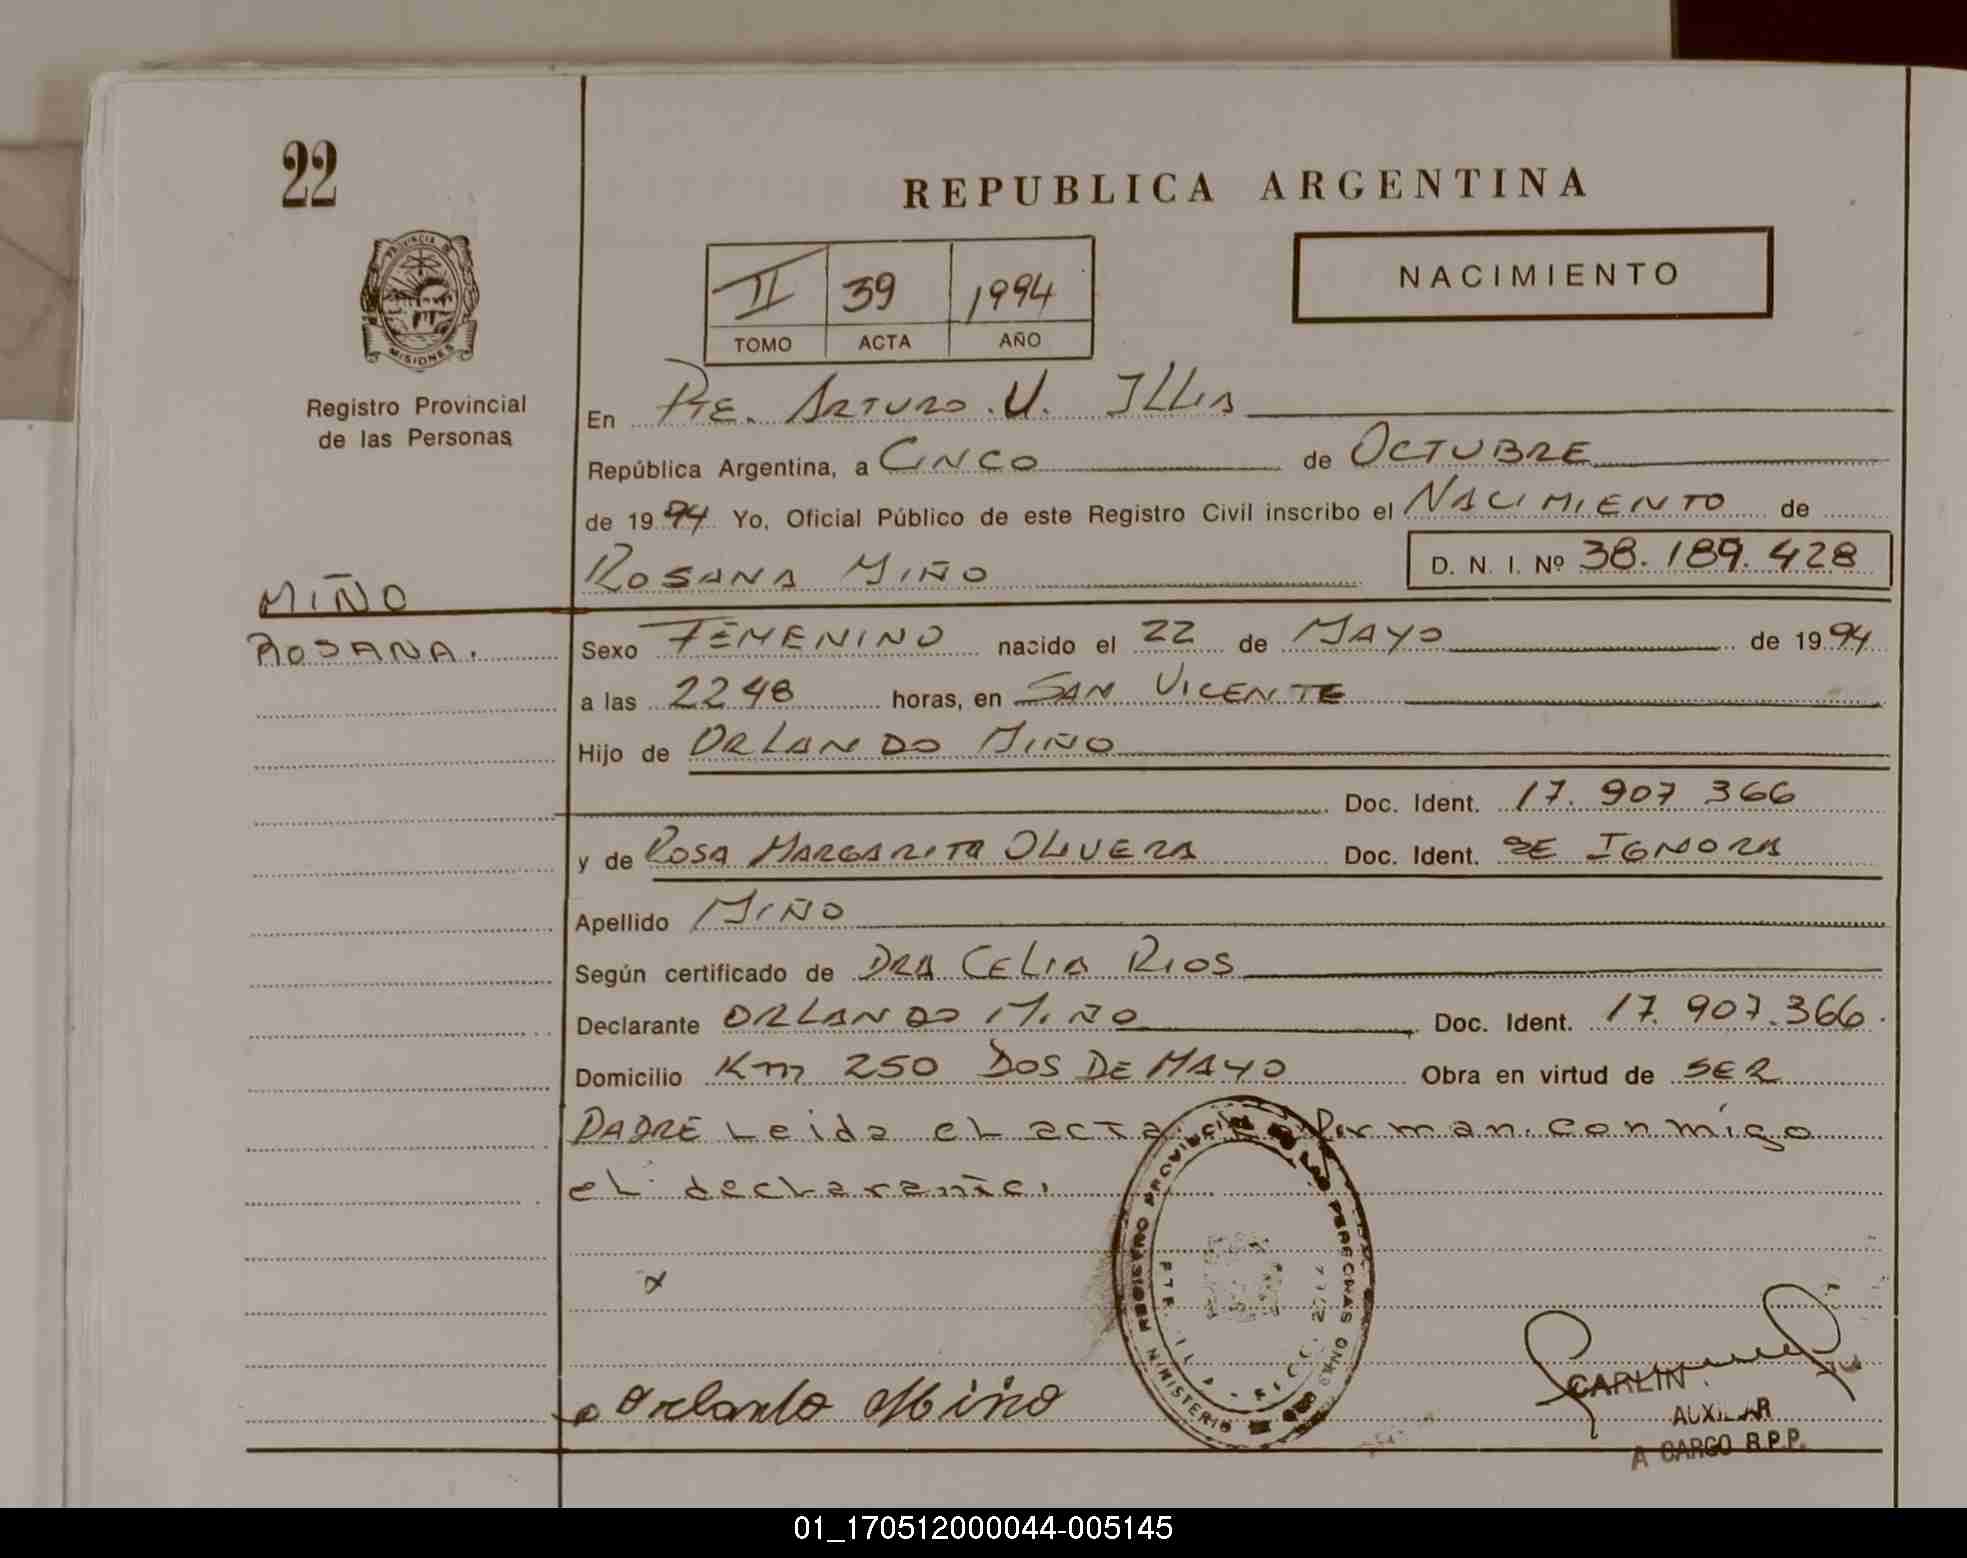 22
REPUBLICA ARGENTINA
PROVINCIA DE
MISIONES
Registro Provincial
de las Personas
II 39 1994
TOMO ACTA AÑO
NACIMIENTO
En Pte. Arturo U. Illia
República Argentina, a Cinco de Octubre
de 1994 Yo, Oficial Público de este Registro Civil inscribo el Nacimiento de
Rosana Miño D. N. I. Nº 38.189.428
MIÑO
ROSANA.
Sexo Femenino nacido el 22 de Mayo de 1994
a las 2248 horas, en San Vicente
Hijo de Orlando Miño
Doc. Ident. 17.907 366
y de Rosa Margarita Olivera Doc. Ident. Se Ignora
Apellido Miño
Según certificado de Dra Celia Rios
Declarante Orlando Miño Doc. Ident. 17.907.366.
Domicilio Km 250 Dos De Mayo Obra en virtud de Ser
Padre Leida el acta La Firman conmigo
el declarante.
x
REGISTRO PROVINCIAL DE LAS PERSONAS
MINISTERIO DE
Orlando Miño
CARLIN
AUXILIAR
A CARGO R.P.P.
01_170512000044-005145